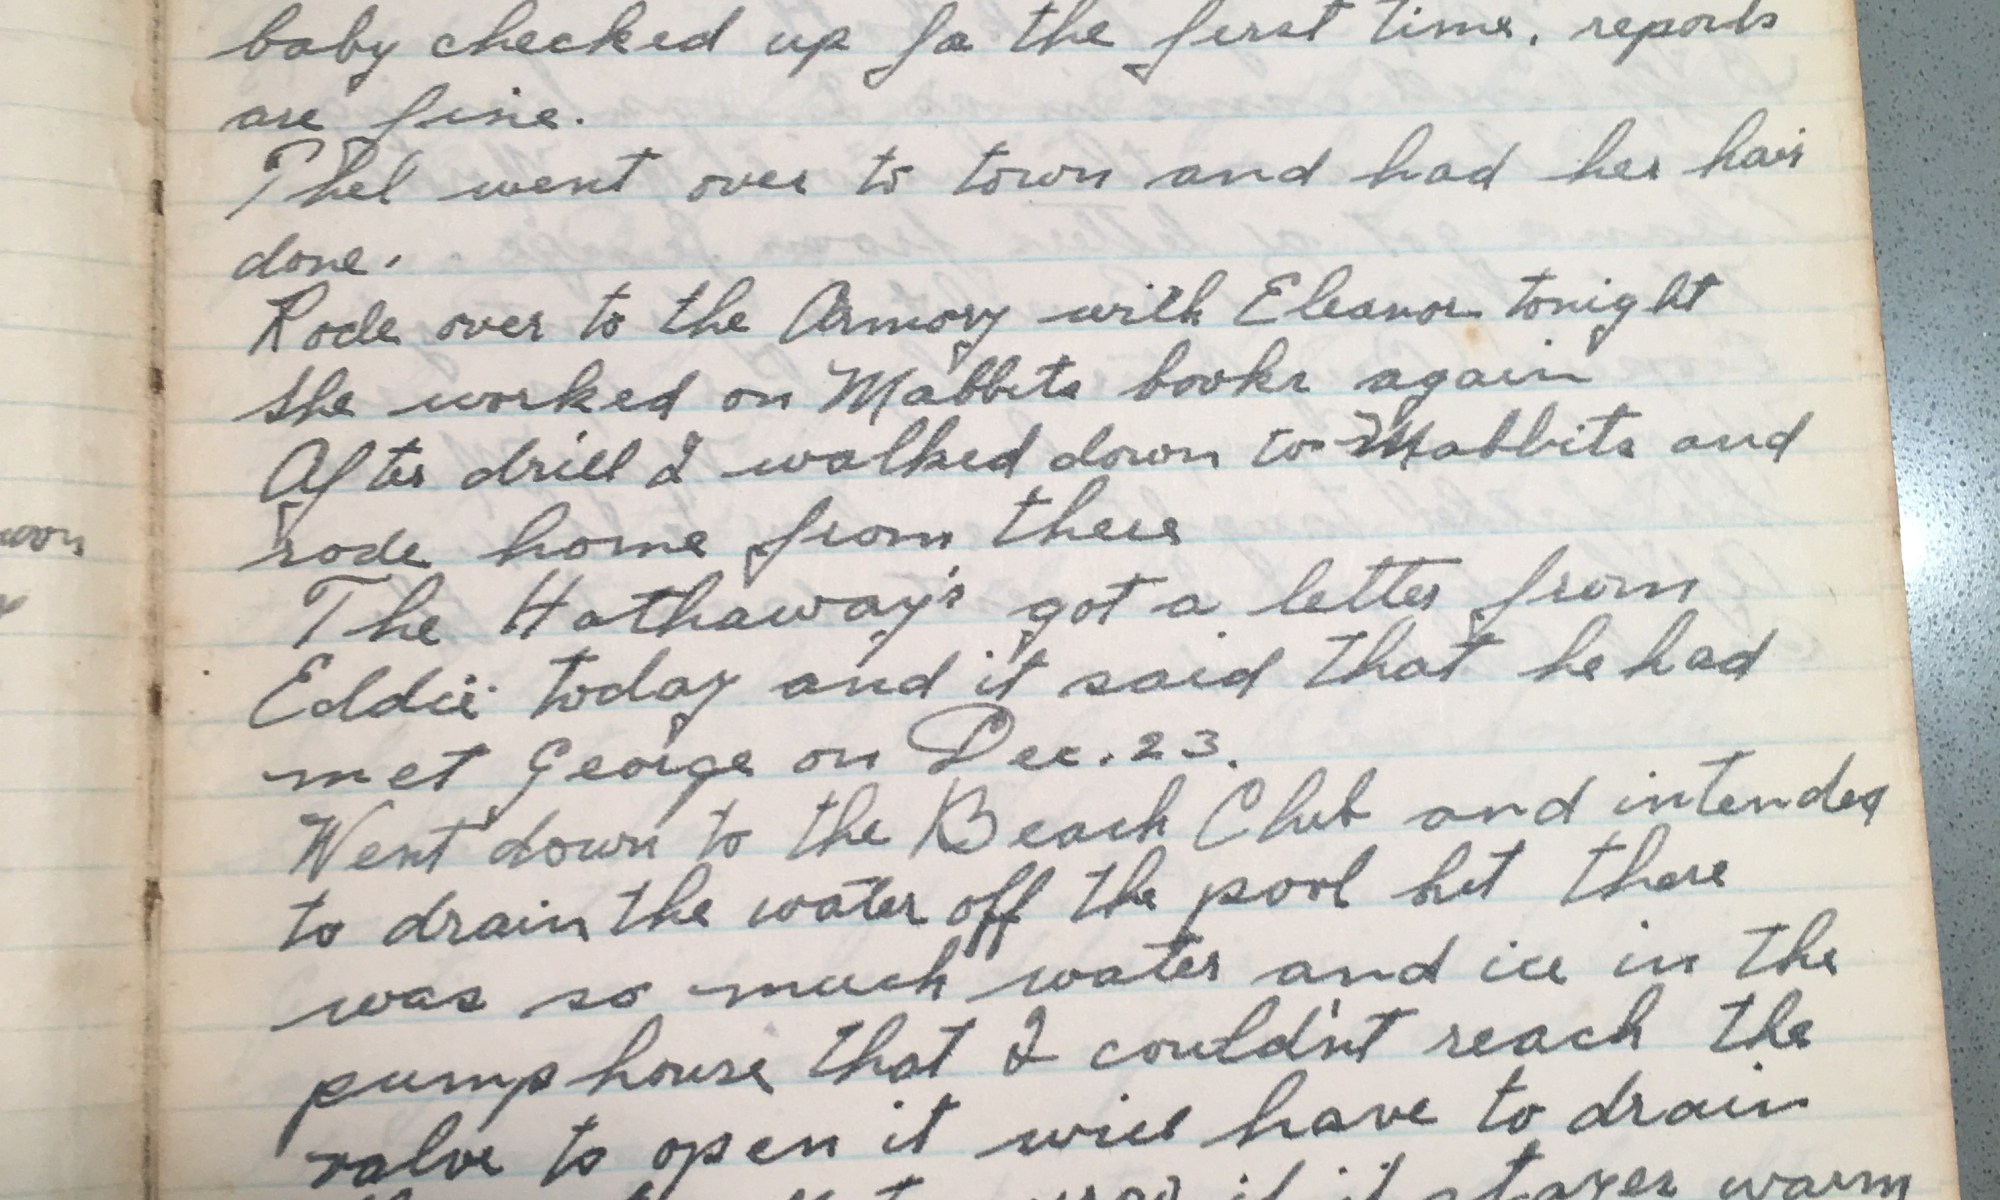 baby checked up fo the first time, reports
are fine.
Thel went over to town and had her hair
done.
Rode over to the Armory with Eleanor tonight
she worked on Mabbits books again
After drill I walked down to Mabbits and
rode home from there
The Hathaway's got a letter from
Eddie today and it said that he had
met George on Dec. 23.
Went down to the Beach Club and intended
to drain the water off the pool but there
was so much water and ice in the
pump house that I couldn't reach the
valve to open it will have to drain
if it stayes warm
woon